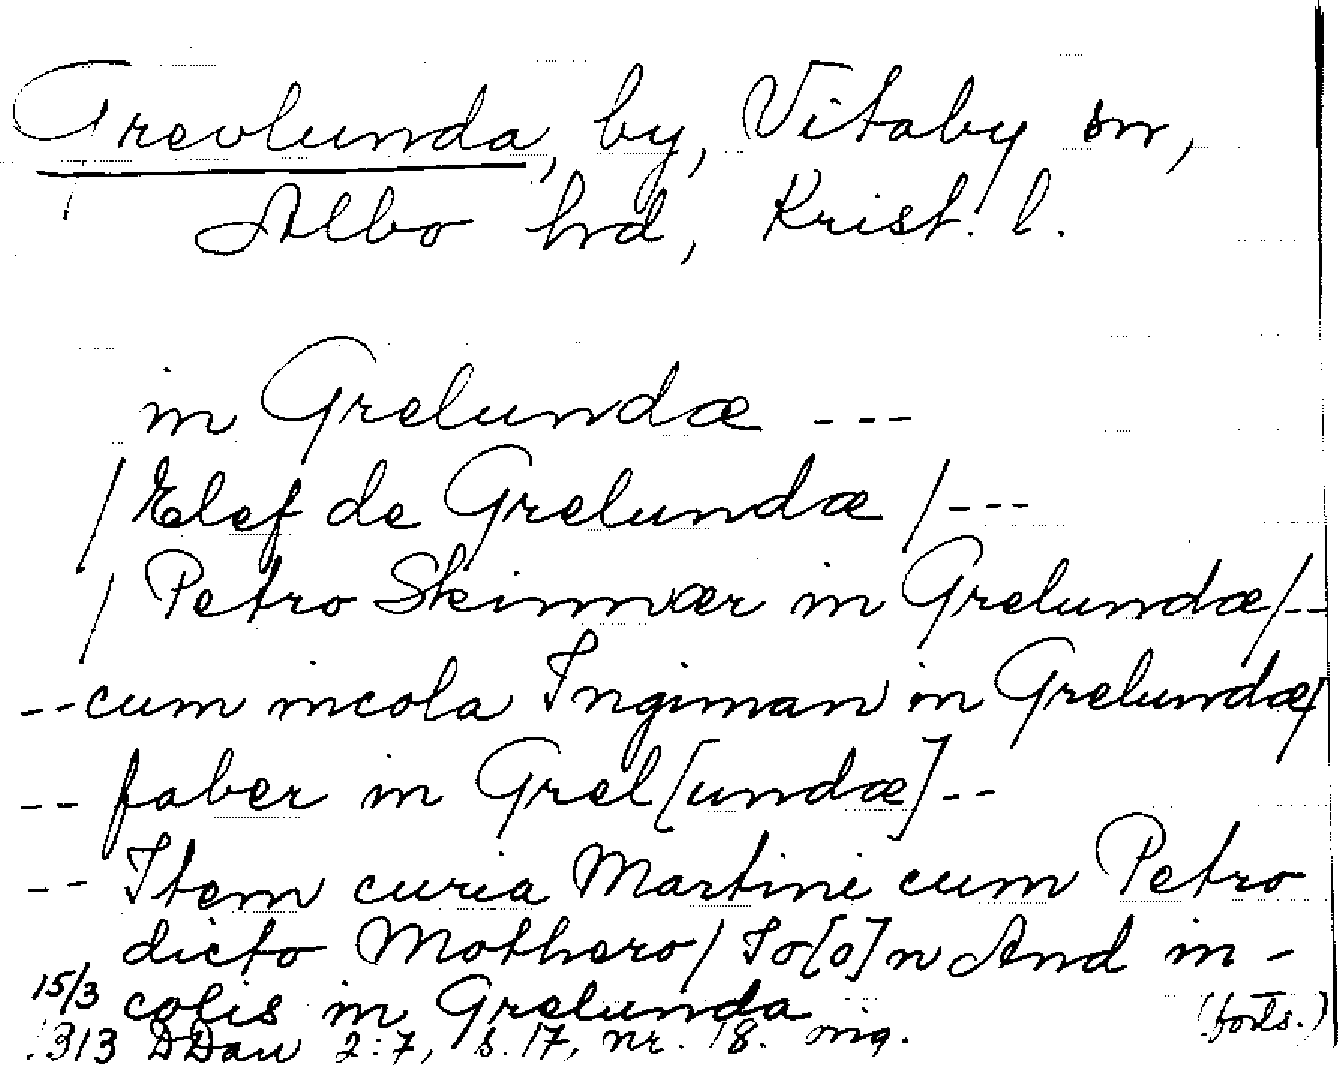 Grevlunda, by, Vitaby sn,
Albo hd, Krist. l.
in Grelundæ ---
/ Elef de Grelundæ / ---
/ Petro Skinnær in Grelundæ / --
-- cum incola Ingiman in Grelundæ /
-- faber in Grel[undæ] --
-- Item curia Martini cum Petro
dicto Mothero / Jo[o]n And in-
15/3 colis in Grelunda (forts.)
1313 DDan 2:7, s. 17, nr. 18.